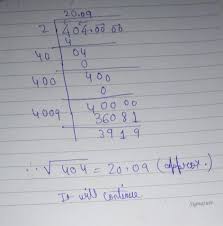 20.09
2 | 404.00 00
4
40 | 04
0
400 | 400
0
4009 | 40000
36081
3919
∴ √404 = 20.09 (approx.)
It will continue